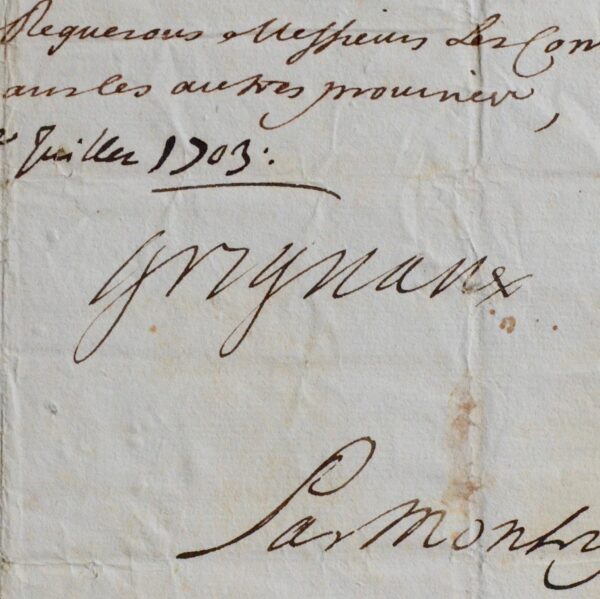 Requerons Messieurs Les Com
ans les autres prouinces,
Juillet 1703.
Grignan
Par Mon